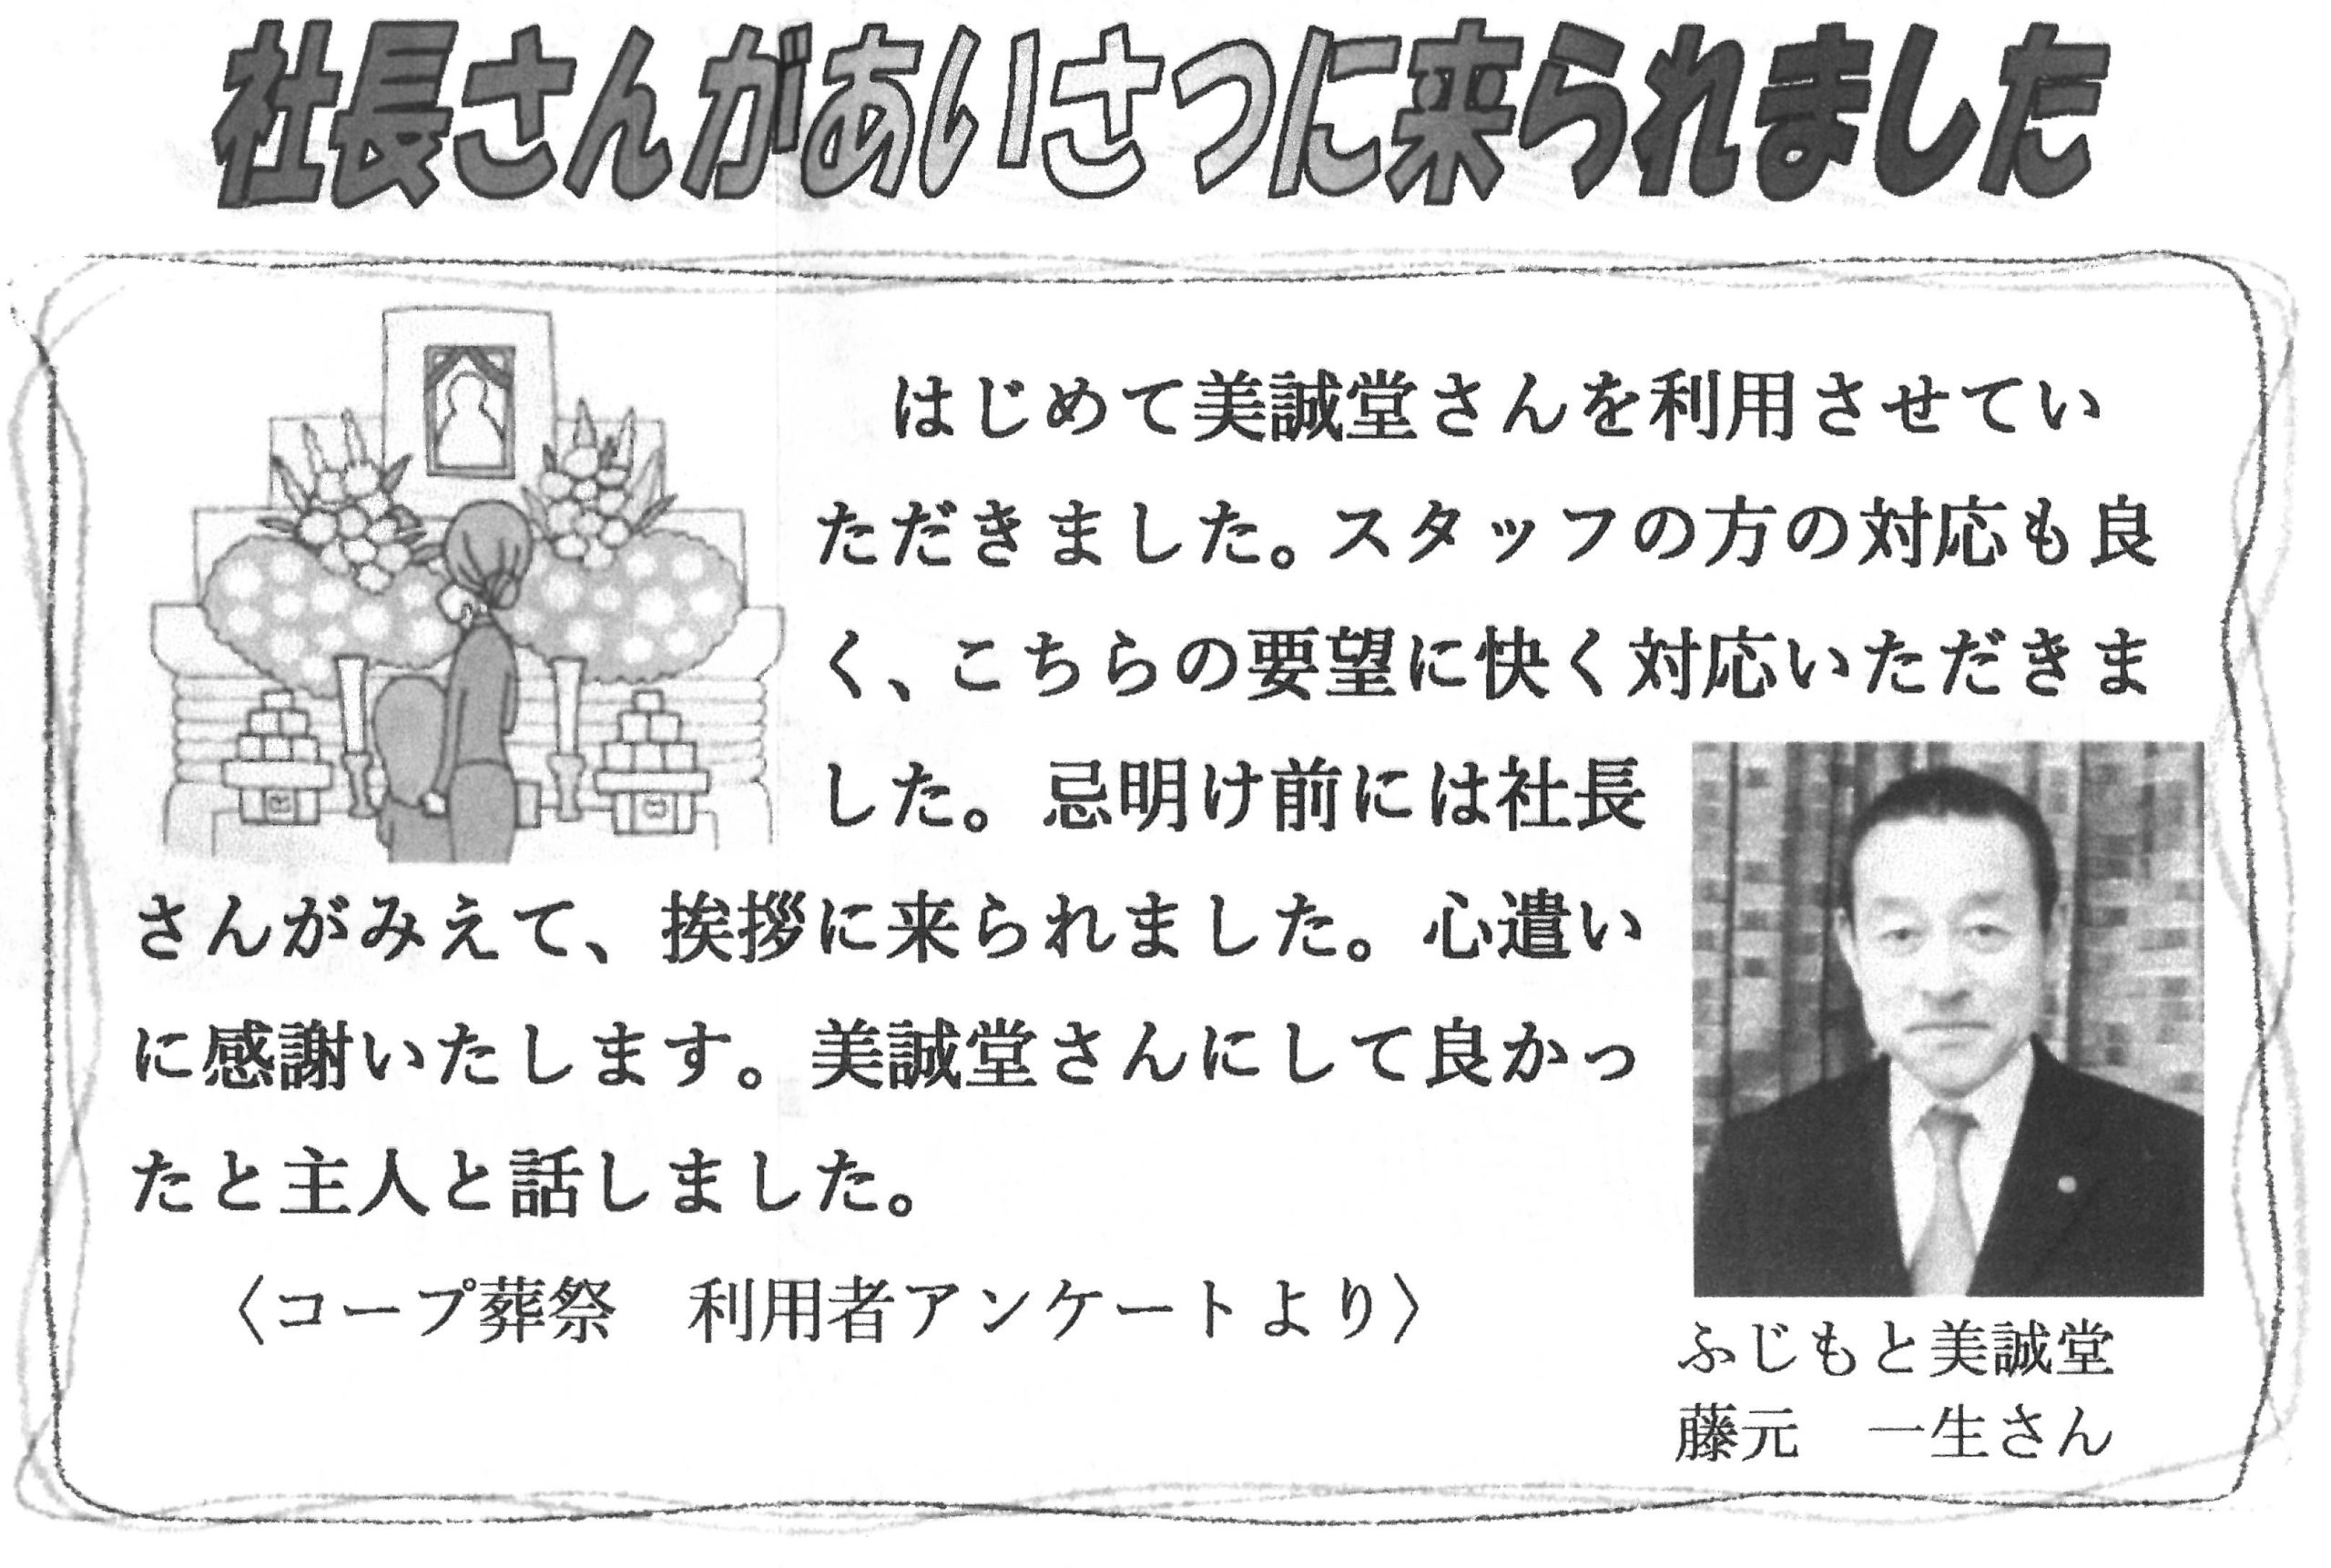 社長さんがあいさつに来られました
はじめて美誠堂さんを利用させてい
ただきました。スタッフの方の対応も良
く、こちらの要望に快く対応いただきま
した。忌明け前には社長
さんがみえて、挨拶に来られました。心遣い
に感謝いたします。美誠堂さんにして良かっ
たと主人と話しました。
〈コープ葬祭　利用者アンケートより〉
ふじもと美誠堂
藤元　一生さん